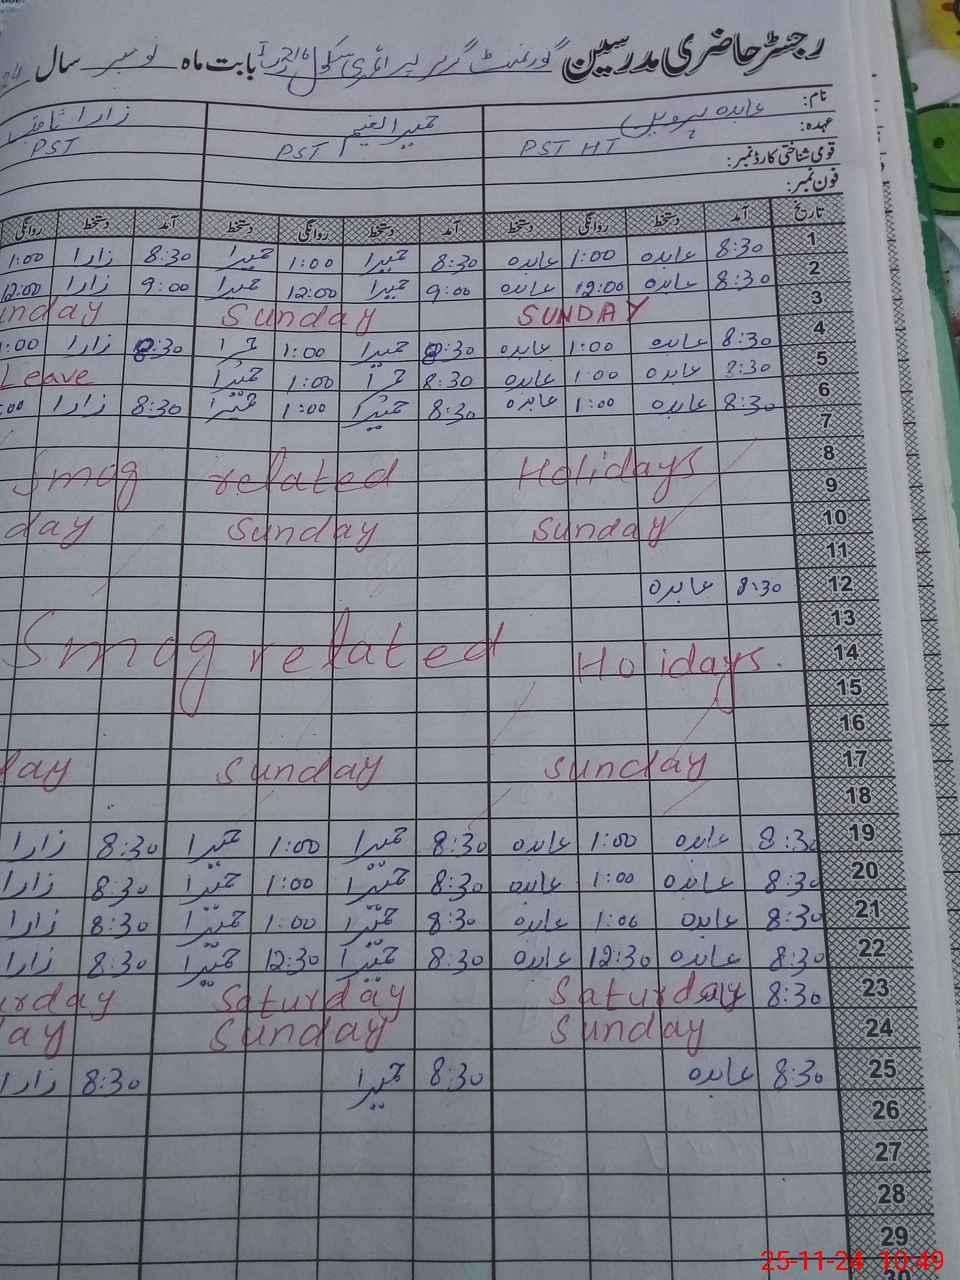 رجسٹر حاضری مدرسین گورنمنٹ گرلز پرائمری سکول بابت ماہ نومبر سال
نام: عابدہ پروین حمیرا نعیم زارا
عہدہ: PST HT PST PST
قومی شناختی کارڈ نمبر:
فون نمبر:
تاریخ آمد دستخط روانگی دستخط آمد دستخط روانگی دستخط آمد دستخط روانگی
1 8:30 عابدہ 1:00 عابدہ 8:30 حمیرا 1:00 حمیرا 8:30 زارا 1:00
2 8:30 عابدہ 12:00 عابدہ 9:00 حمیرا 12:00 حمیرا 9:00 زارا 12:00
3 SUNDAY Sunday nday
4 8:30 عابدہ 1:00 عابدہ 8:30 حمیرا 1:00 8:30 زارا :00
5 8:30 عابدہ 1:00 عابدہ 8:30 1:00 حمیرا Leave
6 8:30 عابدہ 1:00 عابدہ 8:30 حمیرا 1:00 حمیرا 8:30 زارا :00
7
8
Smog related Holidays
9
10 Sunday Sunday day
11
12 8:30 عابدہ
13
14 Smog related Holidays.
15
16
17 Sunday Sunday day
18
19 8:30 عابدہ 1:00 عابدہ 8:30 حمیرا 1:00 حمیرا 8:30 زارا
20 8:30 عابدہ 1:00 عابدہ 8:30 حمیرا 1:00 حمیرا 8:30 زارا
21 8:30 عابدہ 1:00 عابدہ 8:30 حمیرا 1:00 حمیرا 8:30 زارا
22 8:30 عابدہ 12:30 عابدہ 8:30 حمیرا 12:30 حمیرا 8:30 زارا
23 8:30 Saturday Saturday urday
24 Sunday Sunday day
25 8:30 عابدہ 8:30 حمیرا 8:30 زارا
26
27
28
29
25-11-24 10:49